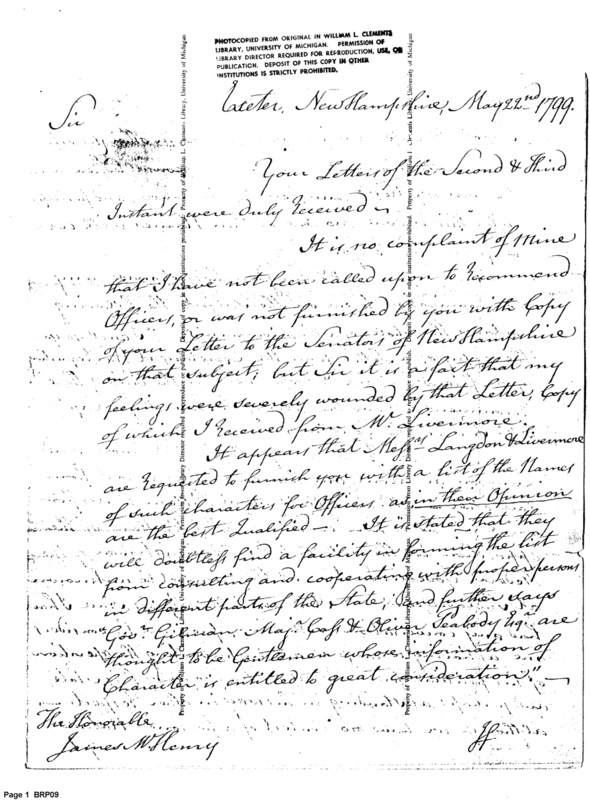 PHOTOCOPIED FROM ORIGINAL IN WILLIAM L. CLEMENTS
LIBRARY, UNIVERSITY OF MICHIGAN. PERMISSION OF
LIBRARY DIRECTOR REQUIRED FOR REPRODUCTION, USE, OR
PUBLICATION. DEPOSIT OF THIS COPY IN OTHER
INSTITUTIONS IS STRICTLY PROHIBITED.
Exeter, New Hampshire, May 22nd 1799.
Sir
Your Letters of the Second & Third
Instant were duly Received ~
It is no complaint of Mine
that I have not been called upon to Recommend
Officers, or was not furnished by you with Copy
of your Letter to the Senators of New Hampshire
on that subject, but Sir it is a fact that my
feelings were severely wounded by that Letter, Copy
of which I Received from Mr Livermore.
It appears that Messrs Langdon & Livermore
are Requested to furnish you with a list of the Names
of such characters for Officers as in their Opinion
are the best Qualified — It is stated that they
will doubtless find a facility in forming the list
from consulting and cooperating with proper persons
in different parts of the State, and further says
"Govr Gilman, Majr Cass & Oliver Peabody Esqr are
thought to be Gentlemen whose information of
Character is entitled to great consideration." —
The Honorable
James McHenry
If
Page 1 BRP09